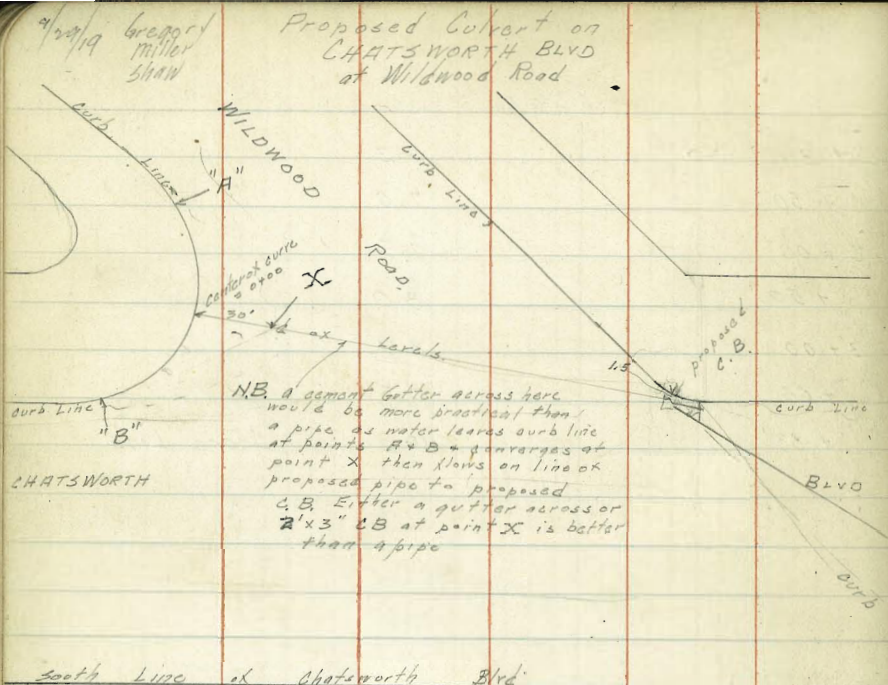 9/29/19
Gregory
Miller
Shaw
Proposed Culvert on
CHATSWORTH BLVD
at Wildwood Road
Curb Line
"A"
WILDWOOD
ROAD.
Curb Line
center of curve
0+00
30'
X
of Levels
1.5
proposed
C.B.
N.B. a cement Gutter across here
would be more practical than
a pipe as water leaves curb line
at points A & B & converges at
point X then flows on line of
proposed pipe to proposed
C.B. Either a gutter across or
2'x3" CB at point X is better
than a pipe
Curb Line
"B"
CHATSWORTH
Curb Line
BLVD
Curb
South Line of Chatsworth Blvd